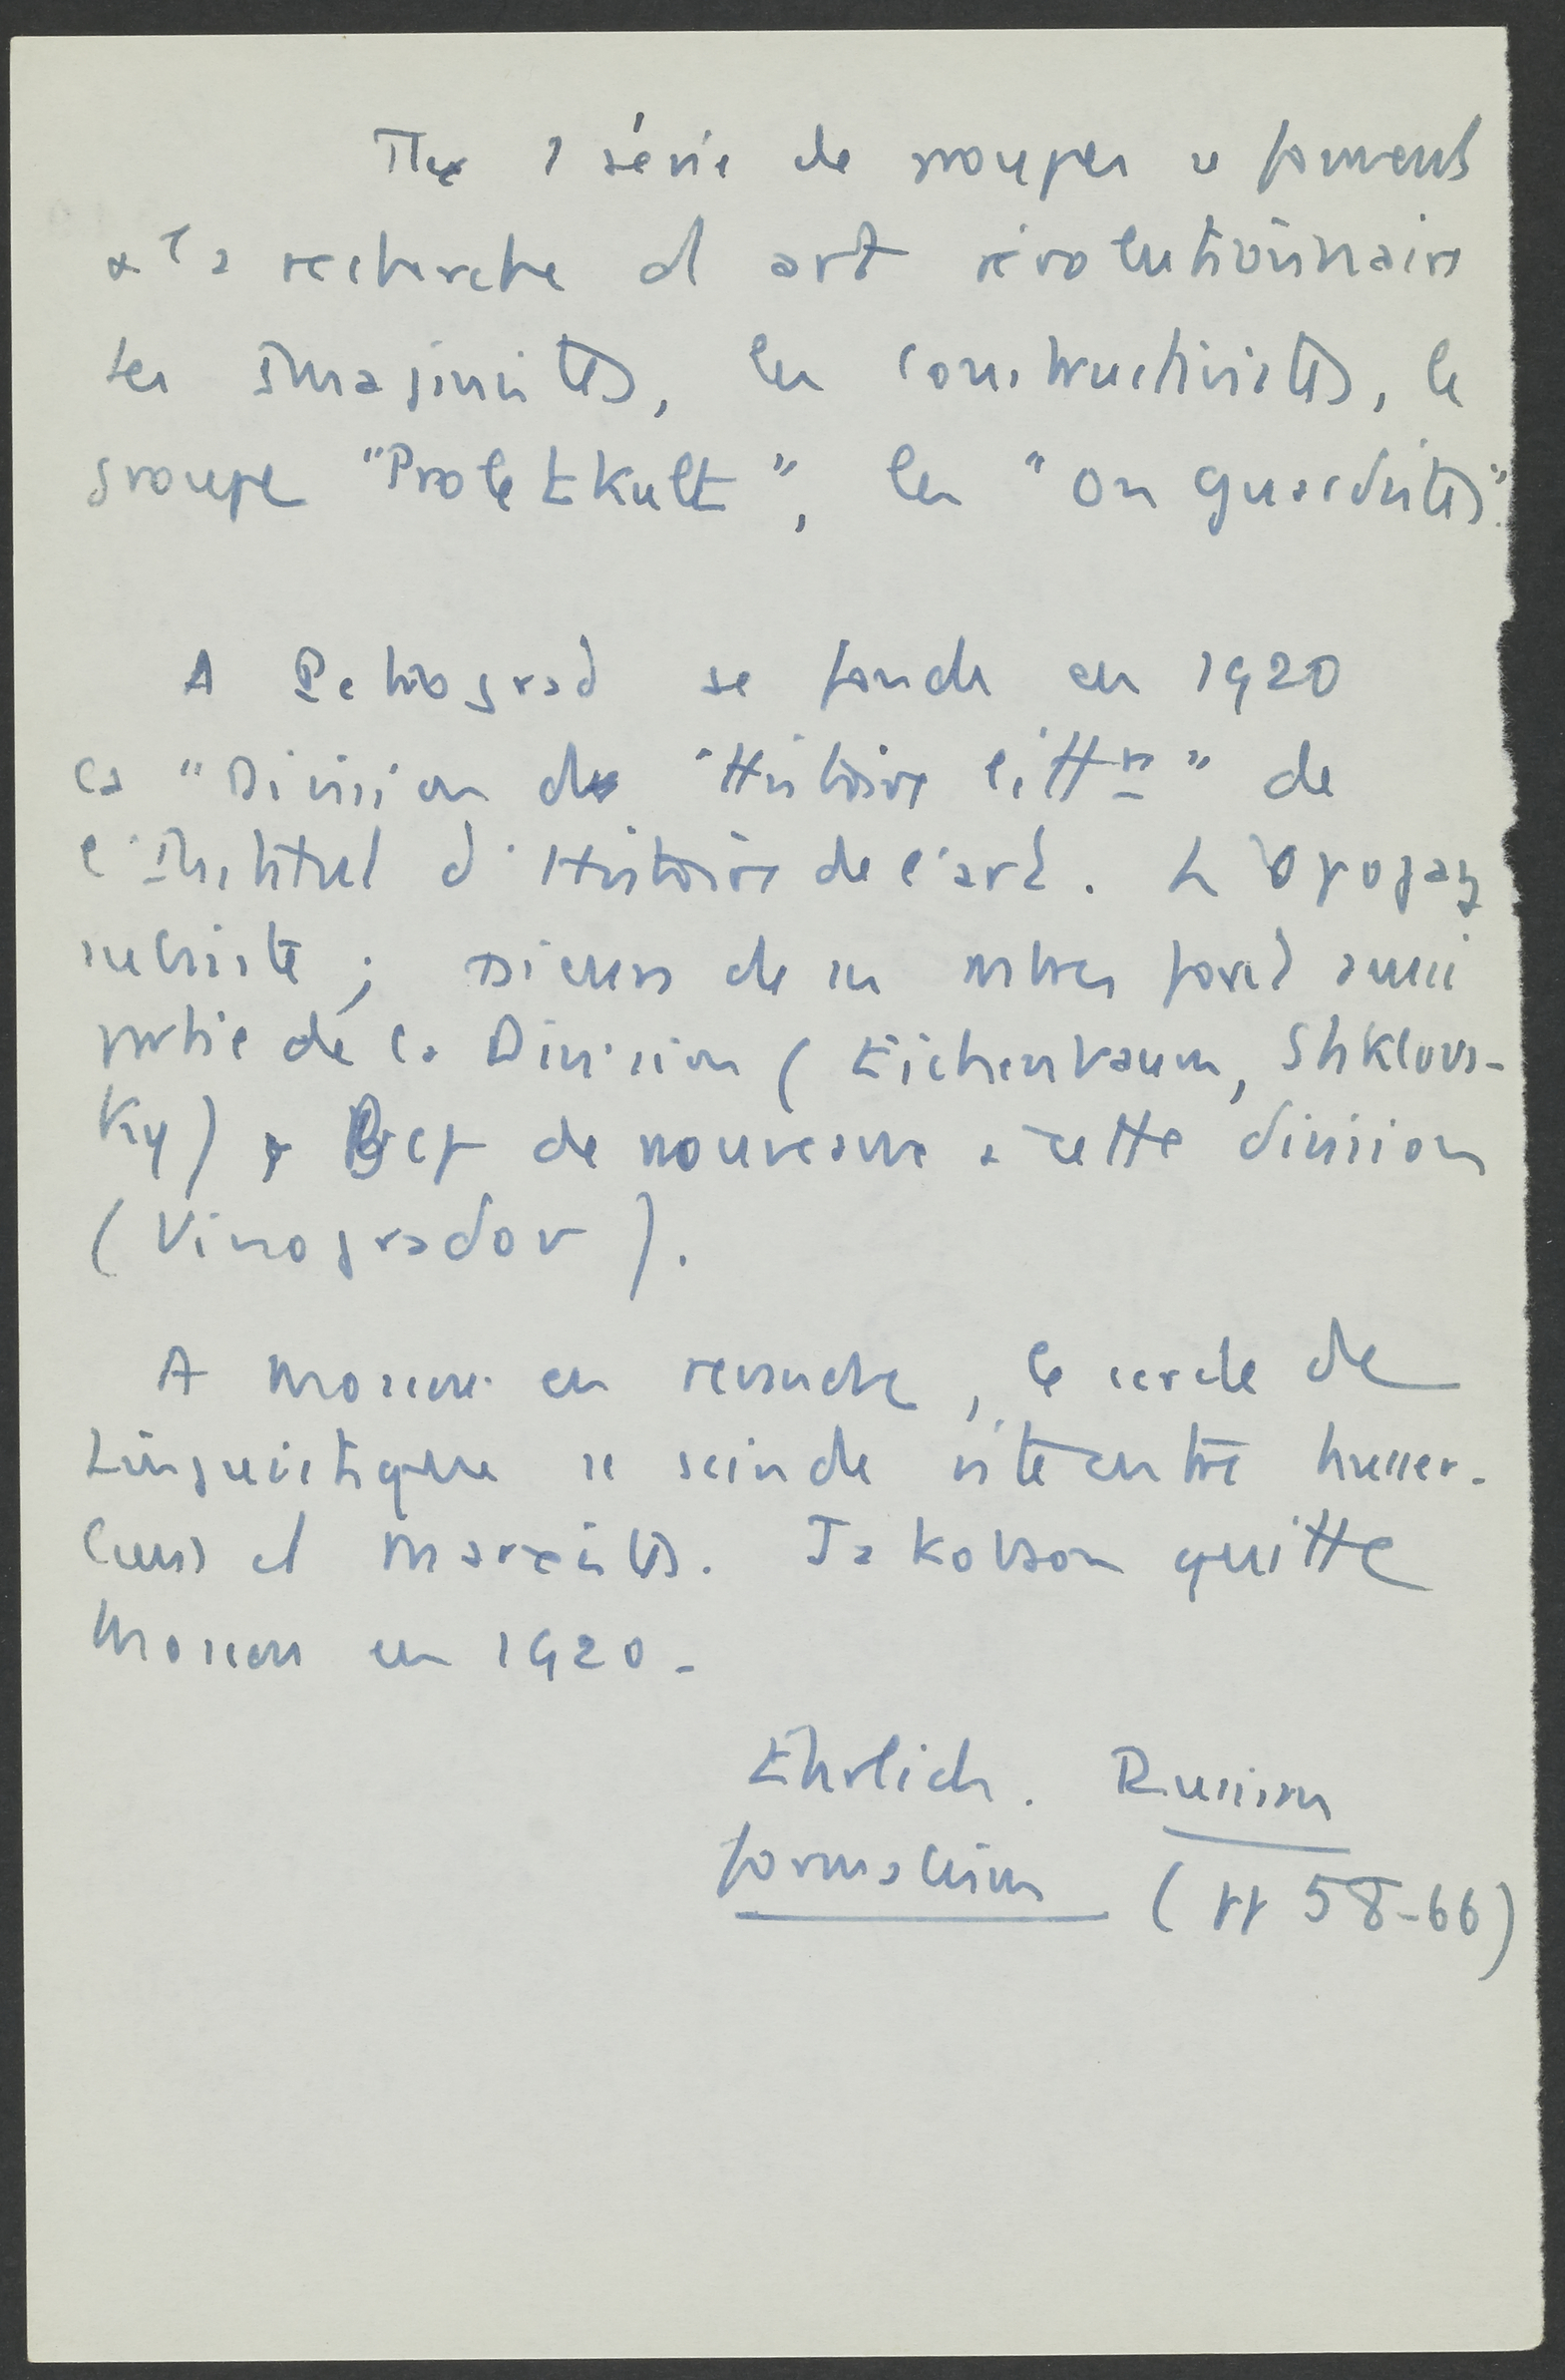 Tte 1 série de groupes se forment
à la recherche d art révolutionnaire
Les Imaginistes, les constructivistes, le
groupe "Proletkult", les "On guardistes".
A Petrograd se fonde en 1920
la "Division de Histoire littre" de
l'Institut d'Histoire de l'art. L'Opojaz
subsiste ; de ses mbres font aussi
partie de la Division (Eichenbaum, Shklovs-
ky) de nouveaux à cette division
(Vinogradov).
A Moscou en revanche, le cercle de
Linguistique se scinde vite entre husser-
liens et Marxistes. Jakobson quitte
Moscou en 1920.
Ehrlich. Russian
formalism (pp 58-66)